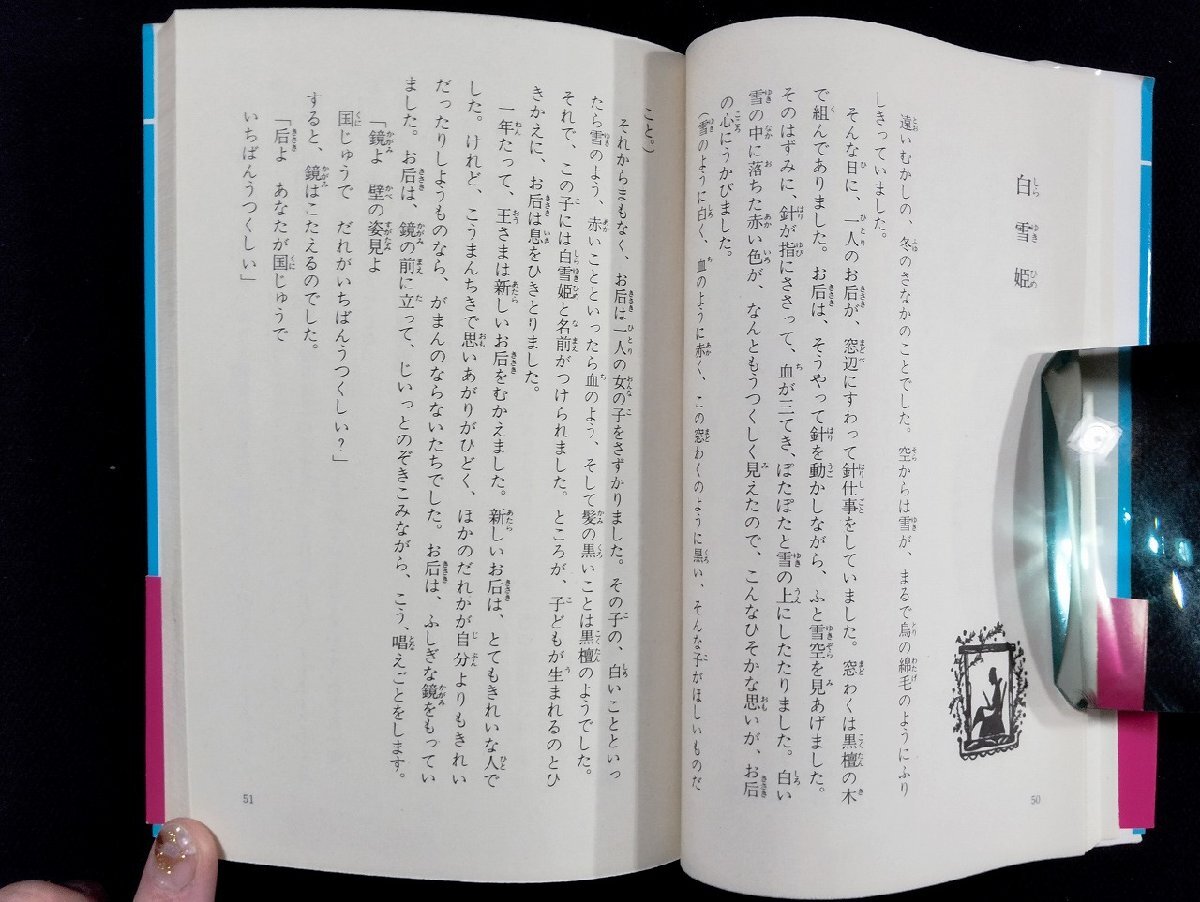 白雪姫
遠いむかしの、冬のさなかのことでした。空からは雪が、まるで鳥の綿毛のようにふり
しきっていました。
そんな日に、一人のお后が、窓辺にすわって針仕事をしていました。窓わくは黒檀の木
で組んでありました。お后は、そうやって針を動かしながら、ふと雪空を見あげました。
そのはずみに、針が指にささって、血が三てき、ぽたぽたと雪の上にしたたりました。白い
雪の中に落ちた赤い色が、なんともうつくしく見えたので、こんなひそかな思いが、お后
の心にうかびました。
(雪のように白く、血のように赤く、この窓わくのように黒い、そんな子がほしいものだ
50
こと。)
それからまもなく、お后は一人の女の子をさずかりました。その子の、白いことといっ
たら雪のよう、赤いことといったら血のよう、そして髪の黒いことは黒檀のようでした。
それで、この子には白雪姫と名前がつけられました。ところが、子どもが生まれるのとひ
きかえに、お后は息をひきとりました。
一年たって、王さまは新しいお后をむかえました。新しいお后は、とてもきれいな人で
した。けれど、こうまんちきで思いあがりがひどく、ほかのだれかが自分よりもきれい
だったりしようものなら、がまんのならないたちでした。お后は、ふしぎな鏡をもってい
ました。お后は、鏡の前に立って、じいっとのぞきこみながら、こう、唱えごとをします。
「鏡よ 壁の姿見よ
国じゅうで だれがいちばんうつくしい?」
すると、鏡はこたえるのでした。
「后よ あなたが国じゅうで
いちばんうつくしい」
51